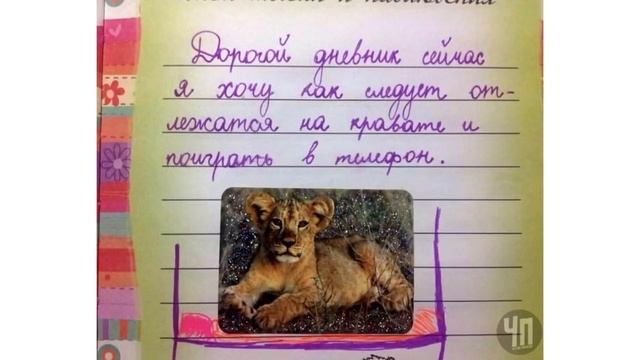 Дорогой дневник сейчас
я хочу как следует от-
лежатся на кравате и
поиграть в телефон.
ЧП